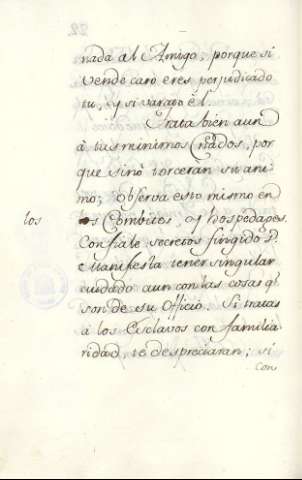 nada al Amigo, porque si
vende caro eres perjudicado
tu, y si varato êl.
Trata bien aun
â tus minimos Criados, por
que sinô torceran su ani
mo; observa esto mismo en
los
os Combites, y hospedages.
Confiale secretos fingidos,
Manifesta tener singular
cuidado aun con las cosas q.
son de su Officio. Si tratas
â los Esclavos con familia
ridad, te despreciaran; si
con